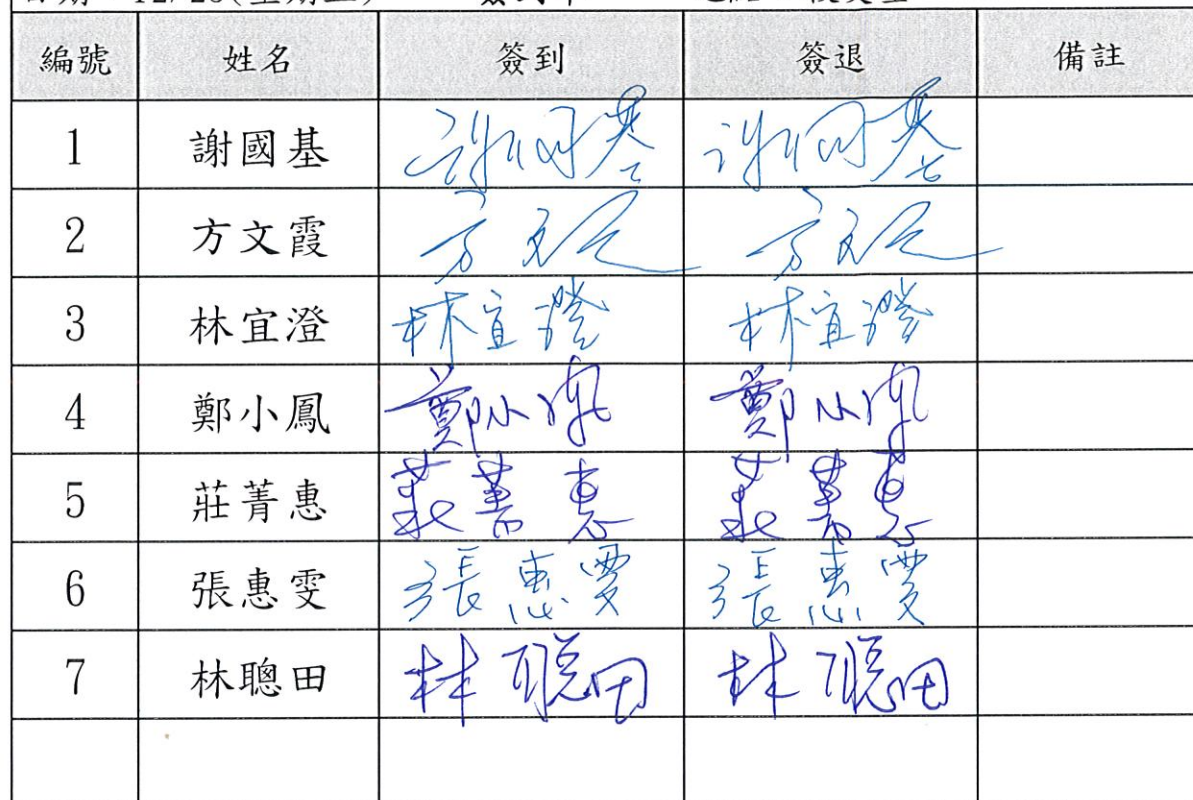 編號 姓名 簽到 簽退 備註
1 謝國基 謝國基 謝國基
2 方文霞 方文霞 方文霞
3 林宜澄 林宜澄 林宜澄
4 鄭小鳳 鄭小鳳 鄭小鳳
5 莊菁惠 莊菁惠 莊菁惠
6 張惠雯 張惠雯 張惠雯
7 林聰田 林聰田 林聰田